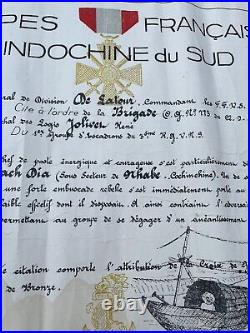 PES FRANÇAIS
INDOCHINE du SUD
ral de Division De Latour, Commandant les T.F.V.S.
Cite à l'ordre de la Brigade (O.G. N°
al des Logis Jolivet René
Du 1er Groupe d'Escadrons du
hef de poste énergique et courageux s'est particulièrement
ach Dia (Sous Secteur de Trhabe, Cochinchine). Le
une forte embuscade rebelle s'est immédiatement porté au
faible effectif dont il disposait. A ainsi contraint l'adversai
permettant au groupe de se dégager d'un anéantissement
e citation comporte l'attribution de la Croix de
de Bronze.